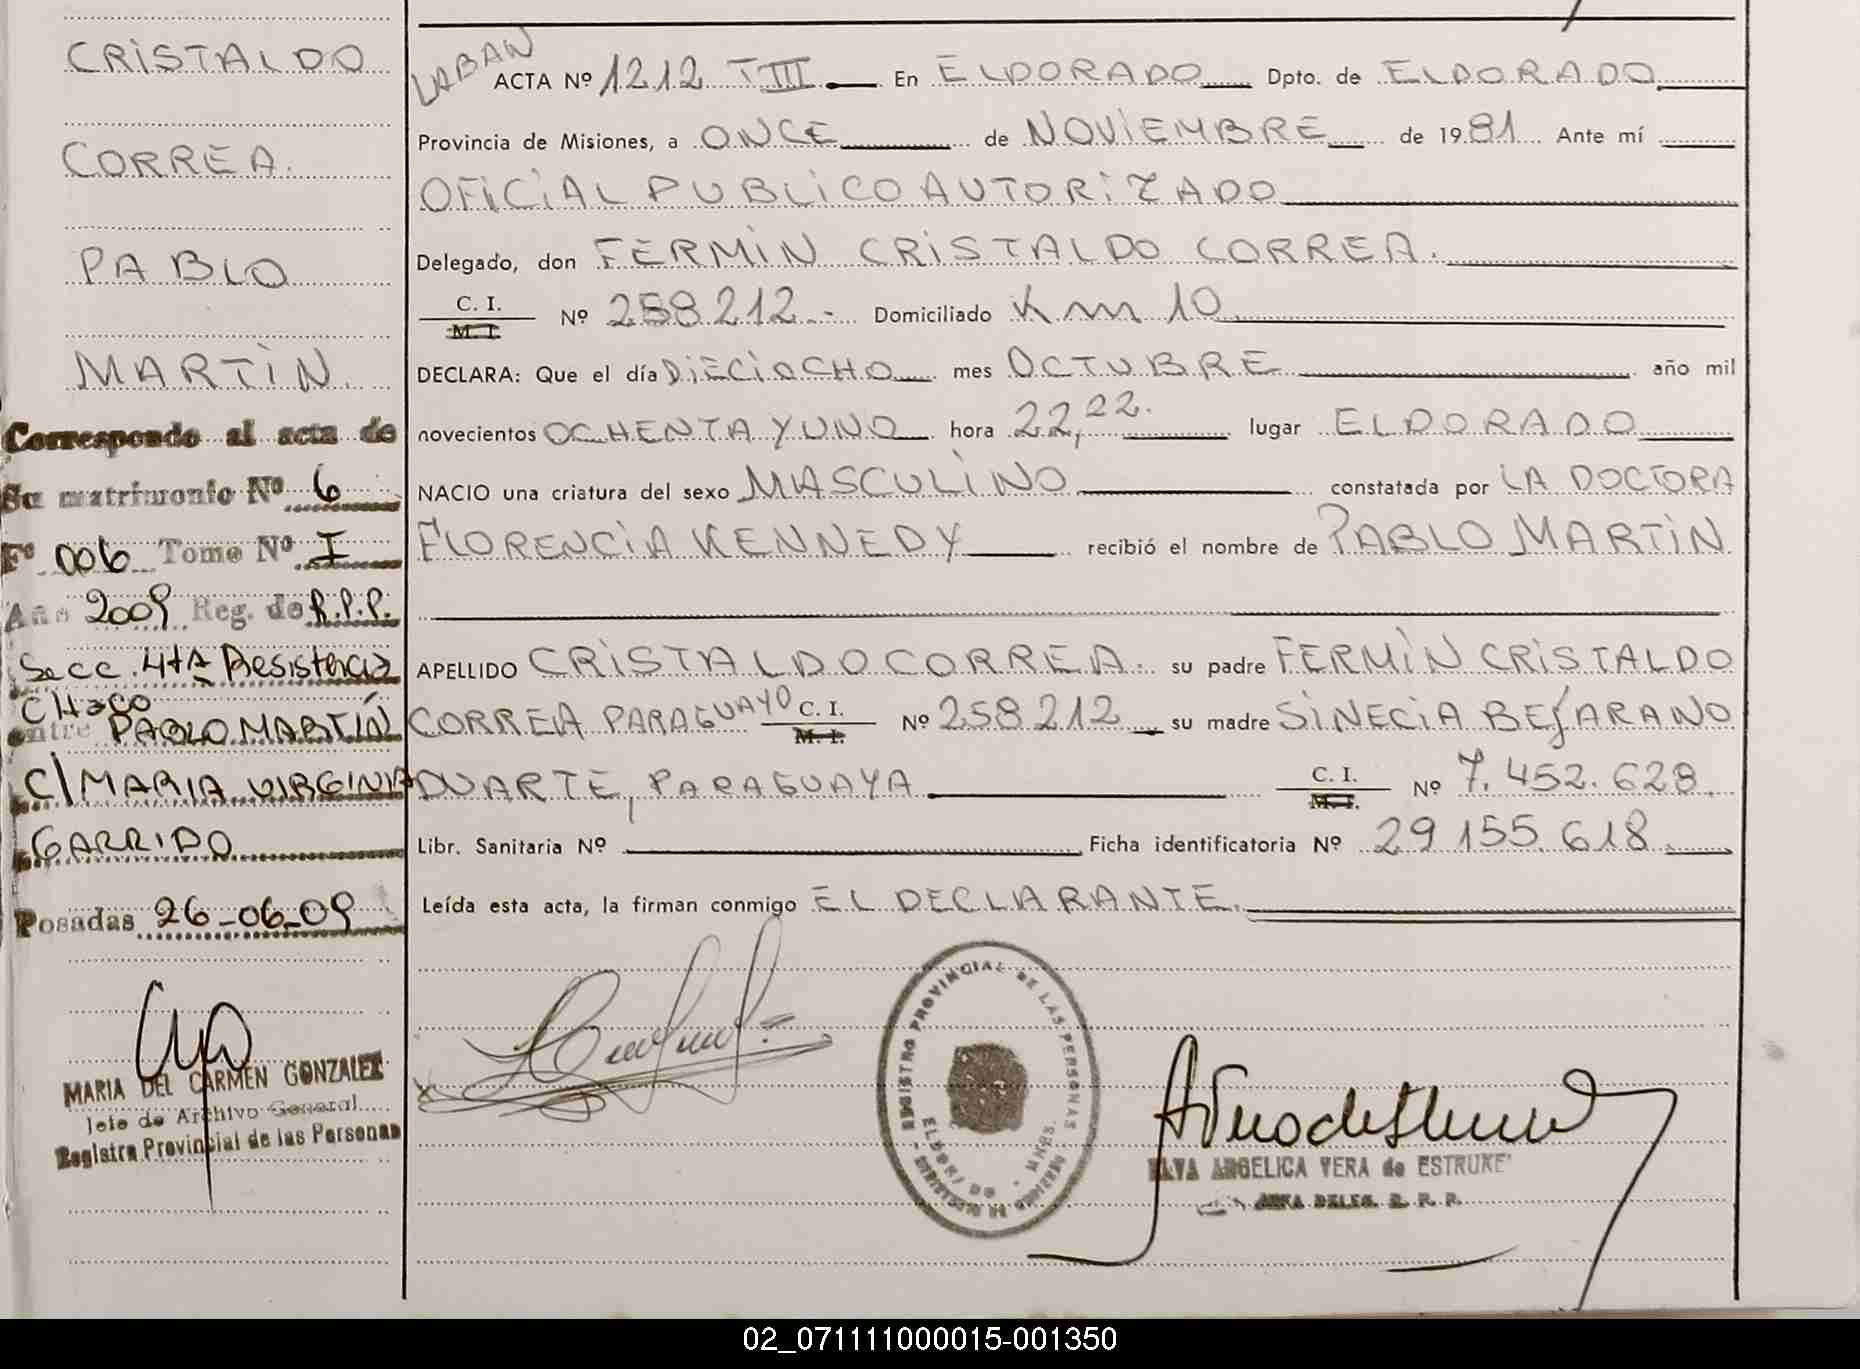 CRISTALDO
CORREA.
PABLO
MARTIN.
Corresponde al acta de
Su matrimonio Nº 6
Fº 006 Tomo Nº I
Año 2009 Reg. de R.P.P.
Secc. 4tA Resistencia
CHaco
entre PABLO MARTÍN
C/ MARIA VIRGINIA
GARRIDO
Posadas 26-06-09
MARIA DEL CARMEN GONZALEZ
Jefe de Archivo General
Registro Provincial de las Personas
LABAN
ACTA Nº 1212 TIII En ELDORADO Dpto. de ELDORADO
Provincia de Misiones, a ONCE de NOVIEMBRE de 1981 Ante mí
OFICIAL PUBLICO AUTORIZADO
Delegado, don FERMIN CRISTALDO CORREA.
C. I.
M. I.
Nº 258.212.- Domiciliado Km 10
DECLARA: Que el día DIECIOCHO mes OCTUBRE año mil
novecientos OCHENTA Y UNO hora 22,22. lugar ELDORADO
NACIO una criatura del sexo MASCULINO constatada por LA DOCTORA
FLORENCIA KENNEDY recibió el nombre de PABLO MARTIN
APELLIDO CRISTALDO CORREA. su padre FERMIN CRISTALDO
CORREA PARAGUAYO C. I. M. I. Nº 258212 su madre SINECIA BEJARANO
DUARTE, PARAGUAYA C. I. M. I. Nº 7.452.628.
Libr. Sanitaria Nº Ficha identificatoria Nº 29 155.618
Leída esta acta, la firman conmigo EL DECLARANTE.
REGISTRO PROVINCIAL DE LAS PERSONAS
ELDORADO - MNES.
ELVA ANGELICA VERA de ESTRUKE
02_071111000015-001350